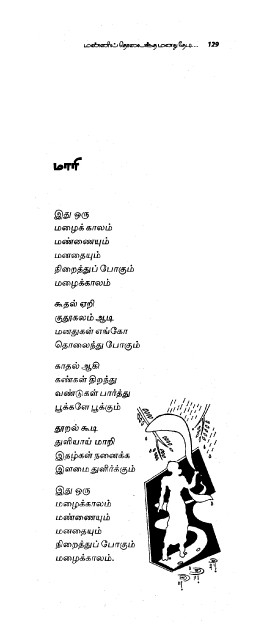 மண்ணில் தொலைந்த மனது தேடி... 129
மாரி
இது ஒரு
மழைக் காலம்
மண்ணையும்
மனதையும்
நிறைத்துப் போகும்
மழைக்காலம்
கூதல் ஏறி
குதூகலம் ஆடி
மனதுகள் எங்கோ
தொலைந்து போகும்
காதல் ஆகி
கண்கள் திறந்து
வண்டுகள் பார்த்து
பூக்களே பூக்கும்
தூறல் கூடி
துளியாய் மாறி
இதழ்கள் நனைக்க
இளமை துளிர்க்கும்
இது ஒரு
மழைக்காலம்
மண்ணையும்
மனதையும்
நிறைத்துப் போகும்
மழைக்காலம்.